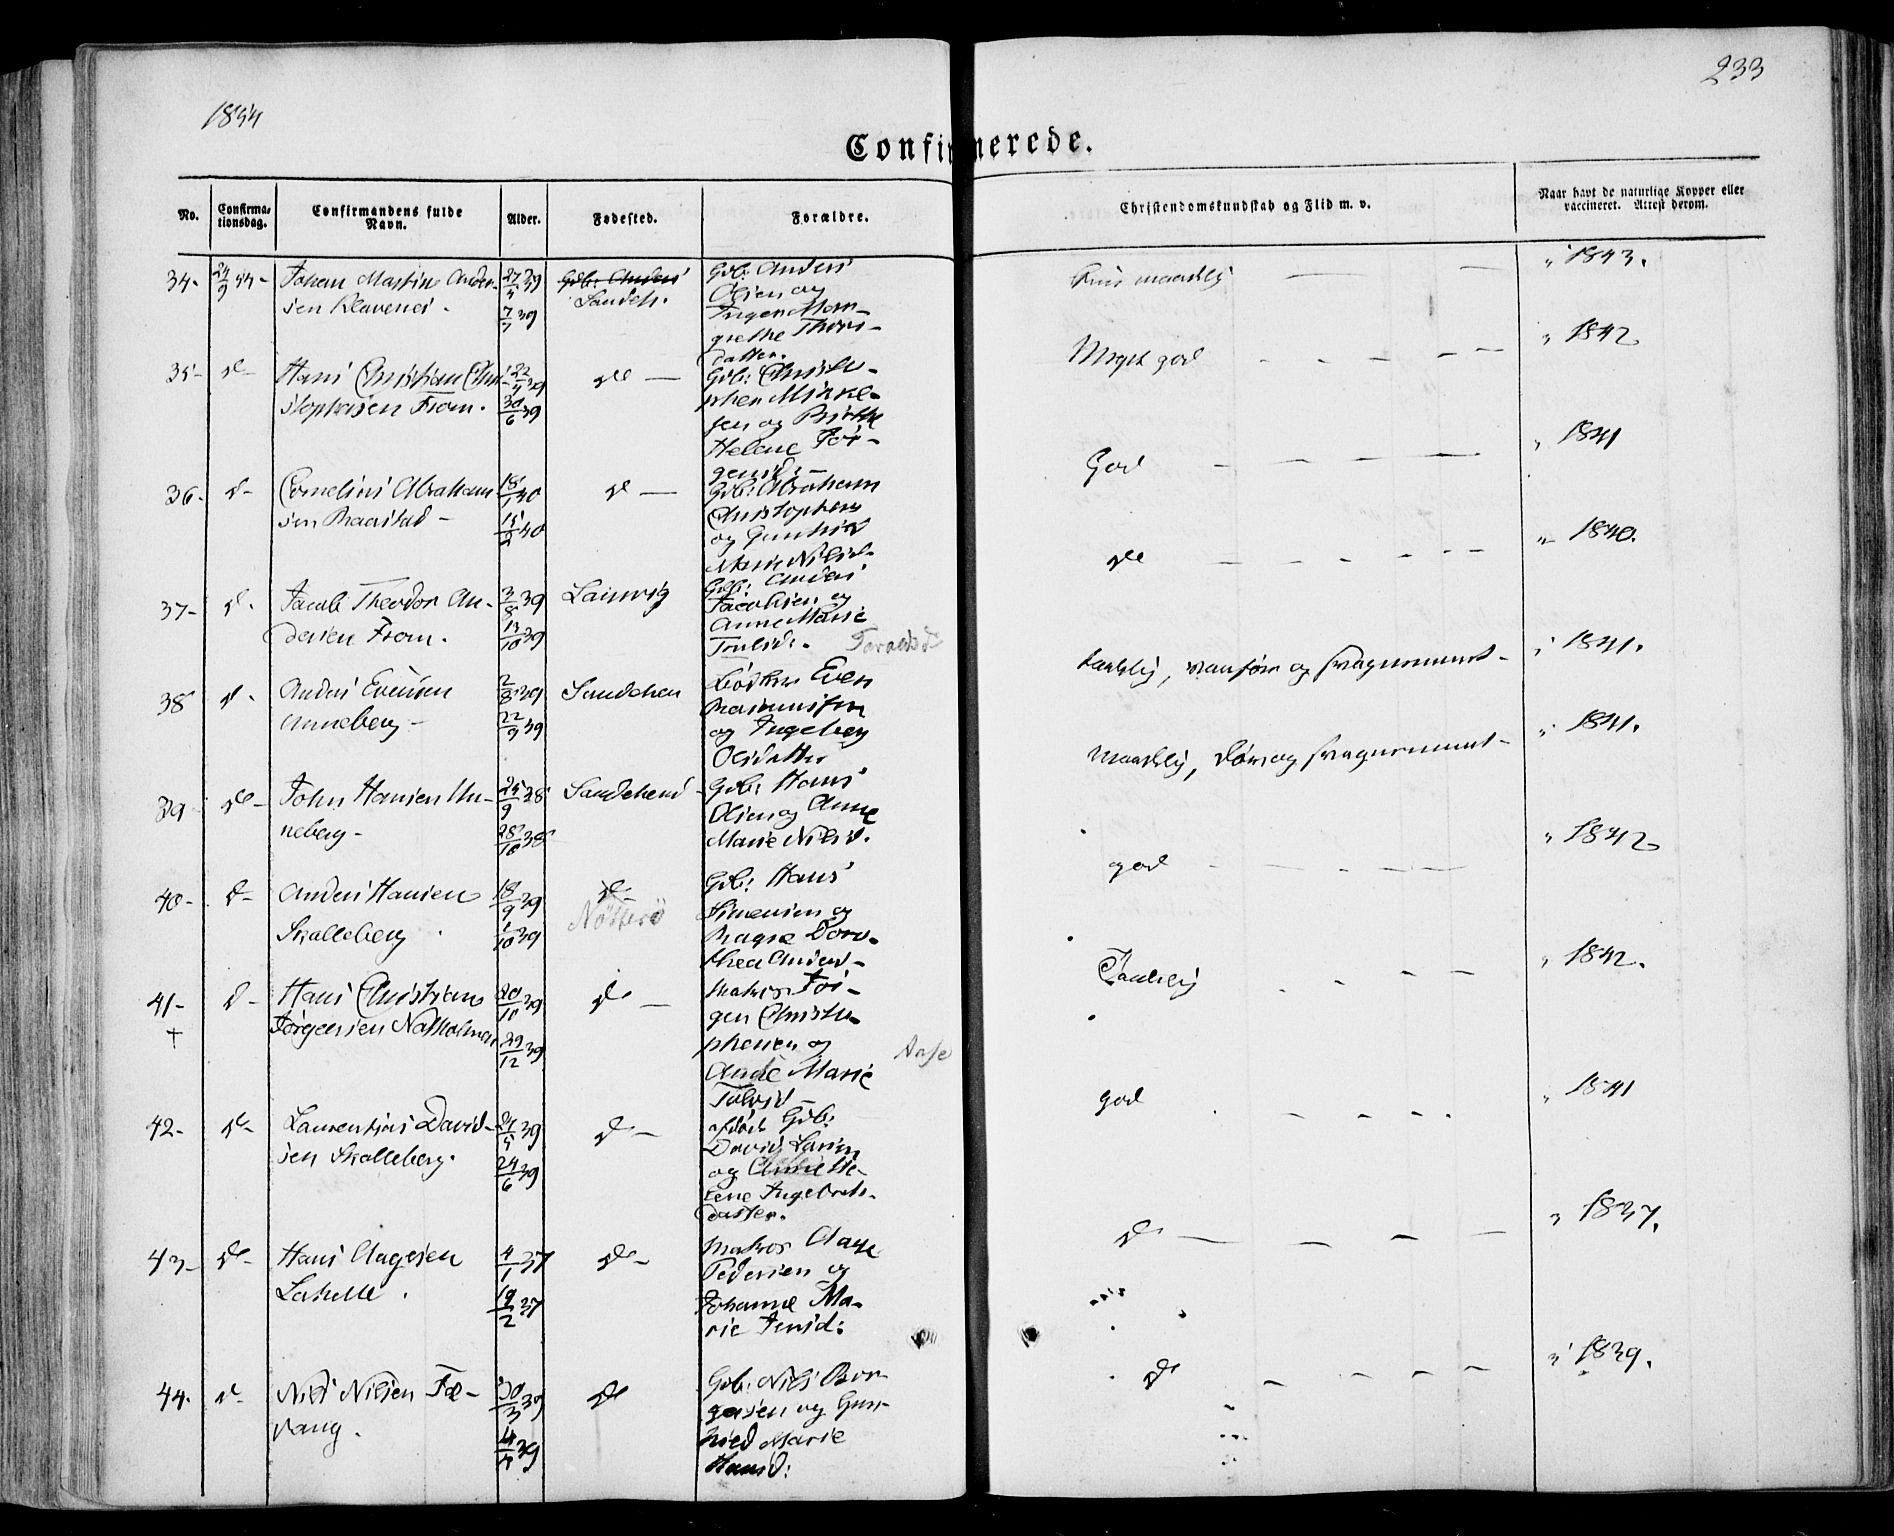 1854
233
Confirmerede.
No.
Confirma-
tionsdag.
Confirmandens fulde
Navn.
Alder.
Fødested.
Forældre.
Christendomskundskab og Flid m. v.
Naar havt de naturlige Kopper eller
vaccineret. Attest derom.
34-
24/9 54-
Johan Martin Ander-
sen Klavenes -
27/4 39
7/7 39
Gdb: Anders
Sandeh.
Gdb: Anders
Olsen og
Inger Mar-
grethe Thors-
datter.
maadelig
" 1843.
35-
do-
Hans Christian Chri-
stophersen Fram.
30/6 39
do -
Gdb: Christo-
pher Mikkel-
sen og Birthe
Helene Jør-
gensd: -
Meget god
" 1842
36-
do-
Cornelius Abraham
sen Raastad -
18/1 40
15/2 40
do -
Gdb: Abraham
Christophers
og Gunhild
Marie Nilsd.
God
" 1841
37-
do-
Jacob Theodor An-
dersen Fram.
3/8 39
13/10 39
Laurvig
Gdb: Anders
Jacobsen og
Anne Marie
Truelsd: - Toraldsd:
do
" 1840.
38
do-
Anders Evensen
Unneberg -
2/8 39
22/9 39
Sandeherr
Even
Rasmussen
og Ingeborg
Olsdatter
taalelig, vanfør og svagnemmet -
" 1841.
39
do-
John Hansen Un-
neberg -
25/9 38
28/10 38
Sandeherred
Gdb: Hans
Olsen og Anne
Marie Nilsd.
maadelig, døv og svagnemmet -
" 1841.
40-
do-
Anders Hansen
Skalleberg
18/9 39
1/10 39
do
Nøtterø
Gdb: Hans
Simensen og
Ragne Doro-
thea Andersd -
god
" 1842
41-
+
do-
Hans Christian
Jørgensen Natholmen
20/10 39
29/12 39
do -
Matros Jør-
gen Christo-
phersen og
Anne Marie
Anne
Tolvsd -
Taalelig
" 1842.
42-
do-
Laurentius David-
sen Skalleberg.
24/5 39
24/6 39
do -
afdøde Gdb:
David Larsen
og Anne He-
lene Ingebrets-
datter.
god
" 1841
43-
do-
Hans Aagesen
Lahelle.
4/1 37
19/2 37
do -
Matros Aage
Pedersen og
Johanne Ma-
rie Jensd:
do
" 1837.
44.
do-
Niels Nilsen Fe-
vang.
30/3 39
do
Gdb: Nils Bør-
gersen og Gun-
hild Marie
Hansd:
do
" 1839.